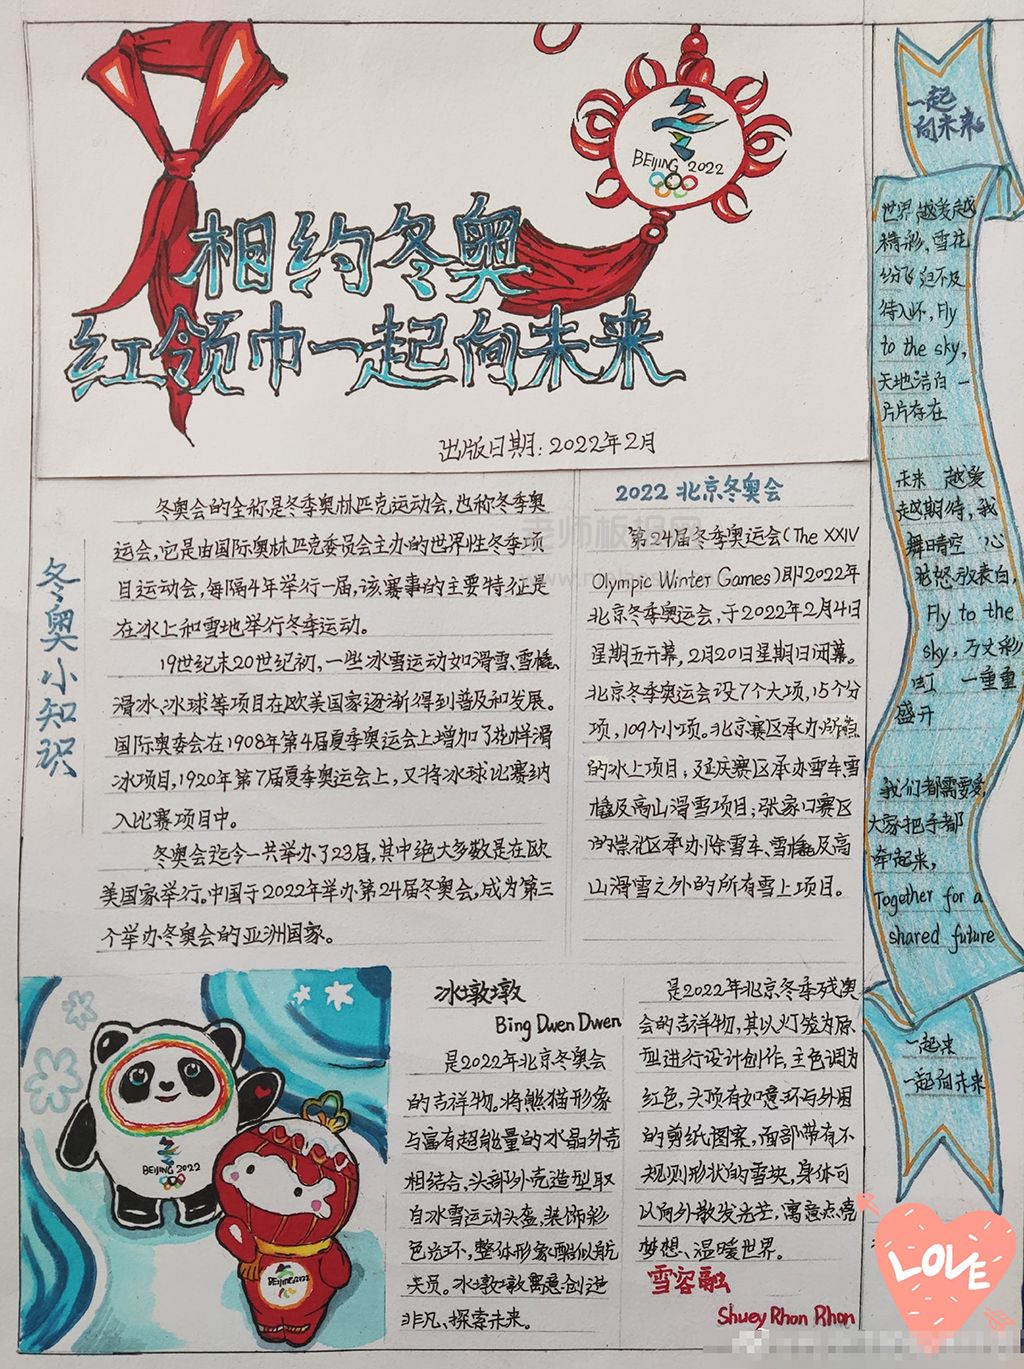 BEIJING 2022
相约冬奥
红领巾一起向未来
出版日期:2022年2月
冬奥小知识
冬奥会的全称是冬季奥林匹克运动会,也称冬季奥
运会,它是由国际奥林匹克委员会主办的世界性冬季项
目运动会,每隔4年举行一届,该赛事的主要特征是
在冰上和雪地举行冬季运动。
19世纪末20世纪初,一些冰雪运动如滑雪、雪橇、
滑冰、冰球等项目在欧美国家逐渐得到普及和发展。
国际奥委会在1908年第4届夏季奥运会上增加了花样滑
冰项目,1920年第7届夏季奥运会上,又将冰球比赛纳
入比赛项目中。
冬奥会迄今一共举办了23届,其中绝大多数是在欧
美国家举行。中国于2022年举办第24届冬奥会,成为第三
个举办冬奥会的亚洲国家。
2022北京冬奥会
第24届冬季奥运会(The XXIV
Olympic Winter Games)即2022年
北京冬季奥运会,于2022年2月4日
星期五开幕,2月20日星期日闭幕。
北京冬季奥运会设7个大项,15个分
项,109个小项。北京赛区承办所有
的冰上项目;延庆赛区承办雪车雪
橇及高山滑雪项目;张家口赛区
的崇礼区承办除雪车、雪橇及高
山滑雪之外的所有雪上项目。
BEIJING 2022
BEIJING 2022
冰墩墩
Bing Dwen Dwen
是2022年北京冬奥会
的吉祥物。将熊猫形象
与富有超能量的冰晶外壳
相结合,头部外壳造型取
自冰雪运动头盔,装饰彩
色光环,整体形象酷似航
天员。冰墩墩寓意创造
非凡、探索未来。
是2022年北京冬季残奥
会的吉祥物,其以灯笼为原
型进行设计创作,主色调为
红色,头顶有如意环与外围
的剪纸图案,面部带有不
规则形状的雪块,身体可
以向外散发光芒,寓意点亮
梦想、温暖世界。
雪容融
Shuey Rhon Rhon
一起
向未来
世界越爱越
精彩,雪花
纷飞迫不及
待入怀,Fly
to the sky,
天地洁白一
片片存在
未来 越爱
越期待,我
舞晴空 心
花怒放表白,
Fly to the
sky,万丈彩
虹 一重重
盛开
我们都需要爱
大家把手都
牵起来,
Together for a
shared future
一起来
一起向未来
LOVE